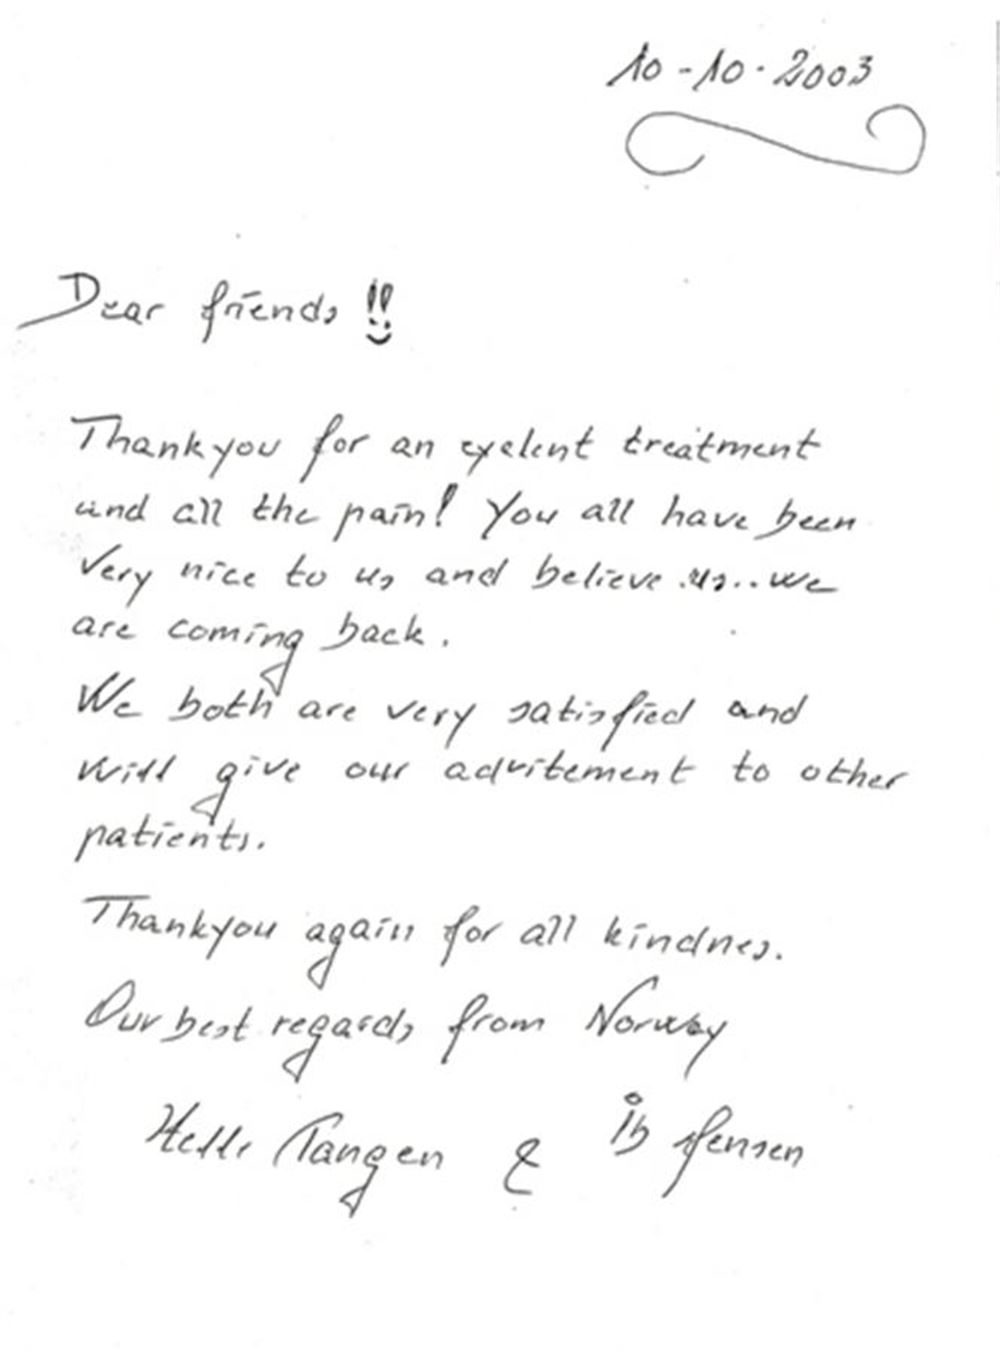 10-10-2003
Dear friends !!
Thankyou for an exelent treatment
and all the pain! You all have been
very nice to us and believe us.. we
are coming back.
We both are very satisfied and
will give our advitement to other
patients.
Thankyou again for all kindnes.
Our best regards from Norway
Helle Tangen & Ib Jensen